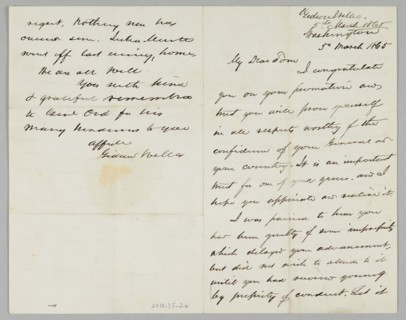 Gideon Welles
5th March 1865
Washington
5th March 1865
My Dear Tom
I congratulate
you on your promotion and
trust you will prove yourself
in all respects worthy of the
confidence of your General and
your country. It is an important
trust for one of your years, and I
hope you appreciate and realize it.
I was pained to hear you
had been guilty of some impropriety
which delayed your advancement,
but did not wish to attend to it
until you had
by propriety of conduct. Let it
regret. Nothing new has
went off last evening, home
We are all well
You with kind
& grateful remembrance
to Genl Ord for his
many kindnesses to you
affte
Gideon Welles
2014.35.26